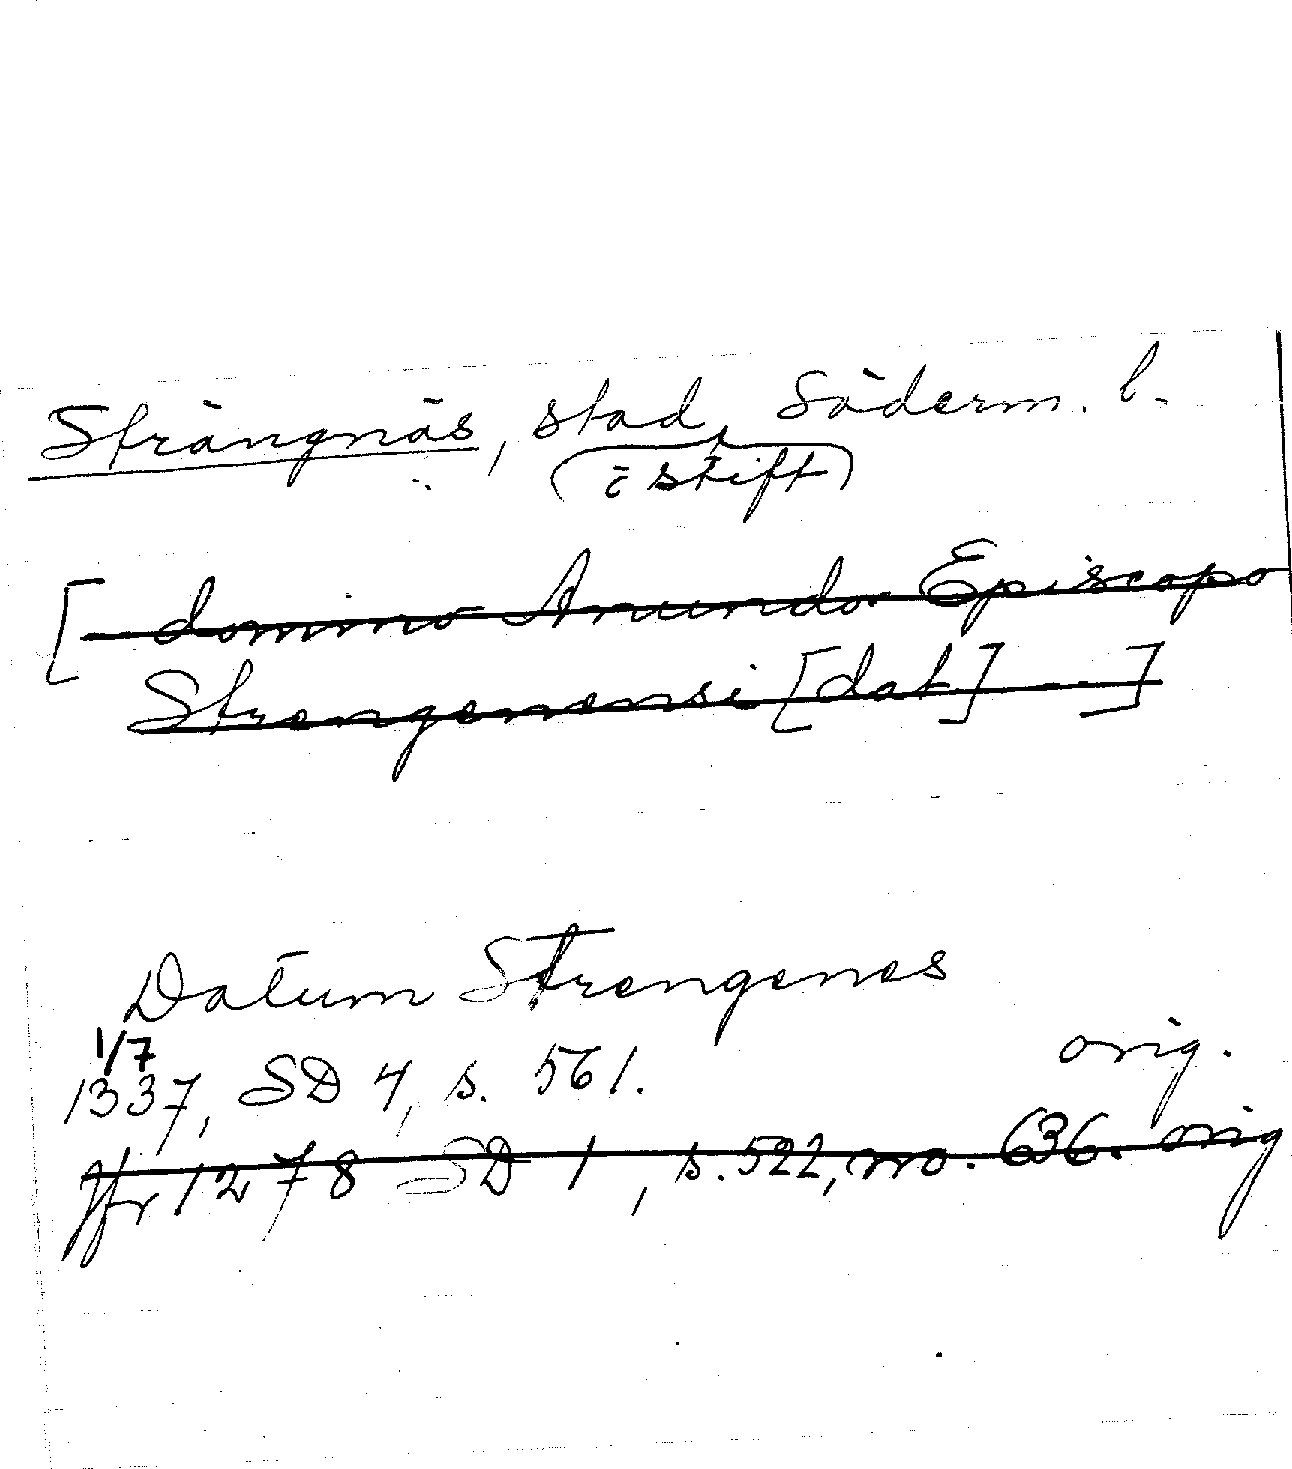 Strängnäs, stad, Söderm. l.
(= stift)
[– domino Anundo Episcopo
Strengenensi [dat] --]
Datum Strengenes
1/7 orig.
1337, SD 4, s. 561.
Jfr 1278 SD 1, s. 522, no. 636. orig